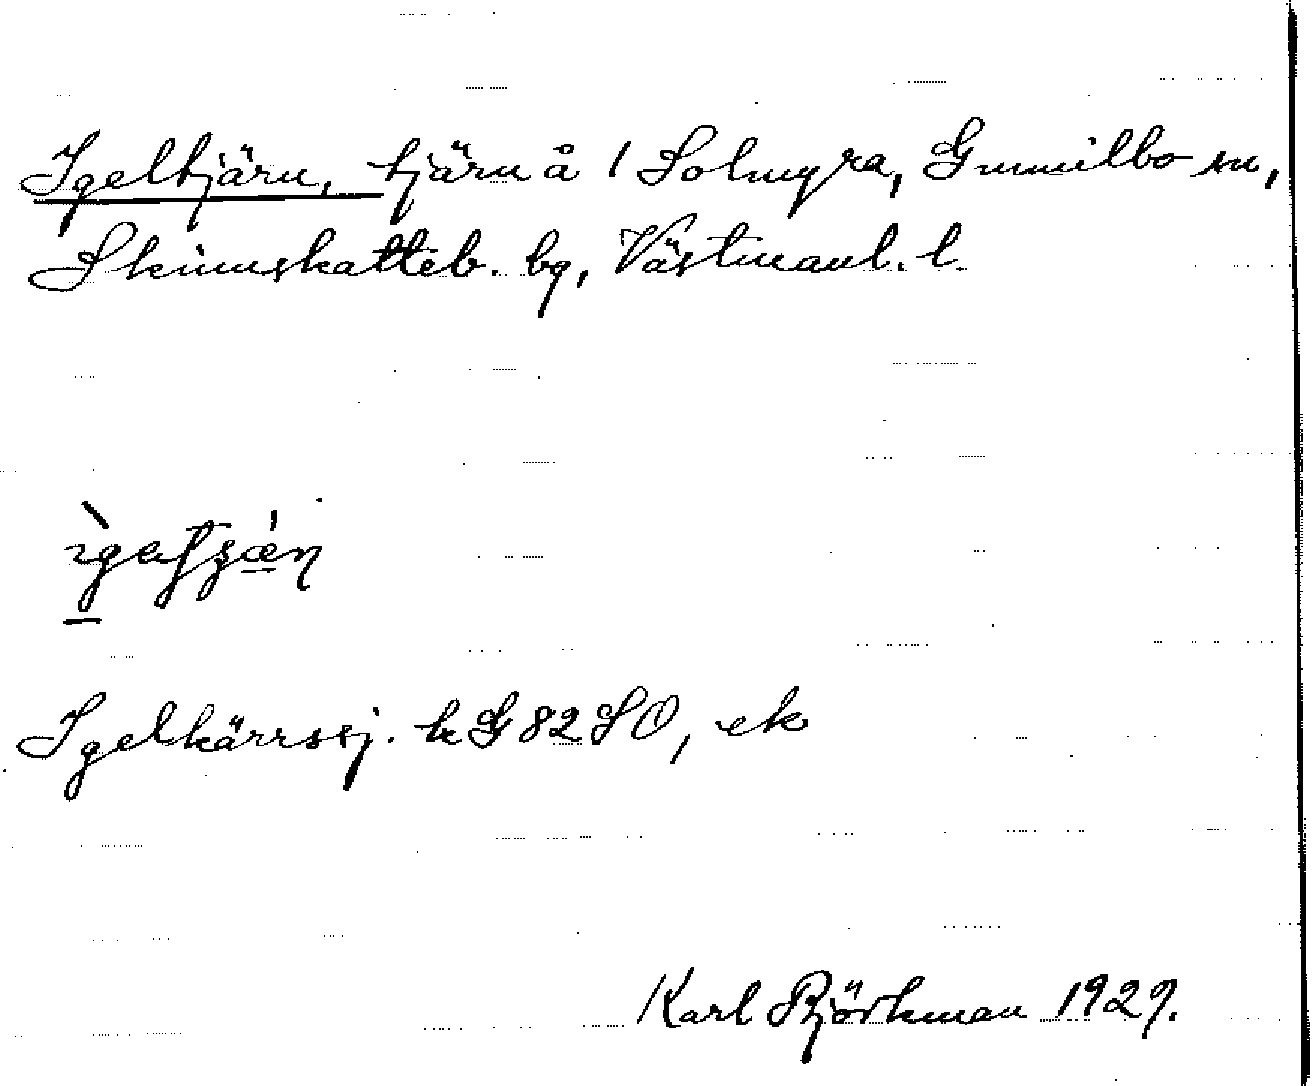 Igeltjärn, tjärn å 1 Solmyra, Gunnilbo sn,
Skinnskatteb. bg, Västmanl. l.
Igelkärrssj. k G 82 SO, ek
Karl Björkman 1929.